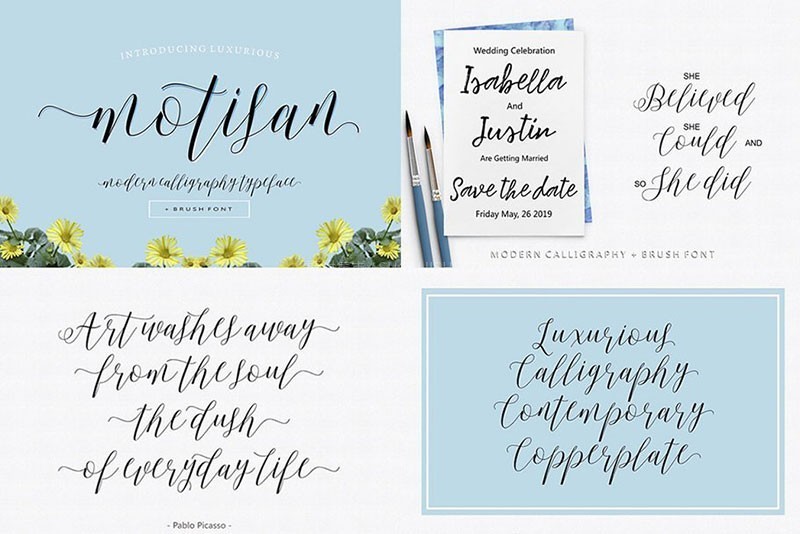 INTRODUCING LUXURIOUS
motisan
modern calligraphy typeface
+ BRUSH FONT
Wedding Celebration
Isabella
And
Justin
Are Getting Married
Save the date
Friday May, 26 2019
SHE
Believed
SHE
Could AND
SO She did
MODERN CALLIGRAPHY + BRUSH FONT
Art washes away
from the soul
the dush
of everyday life
- Pablo Picasso -
Luxurious
Calligraphy
Contemporary
Copperplate